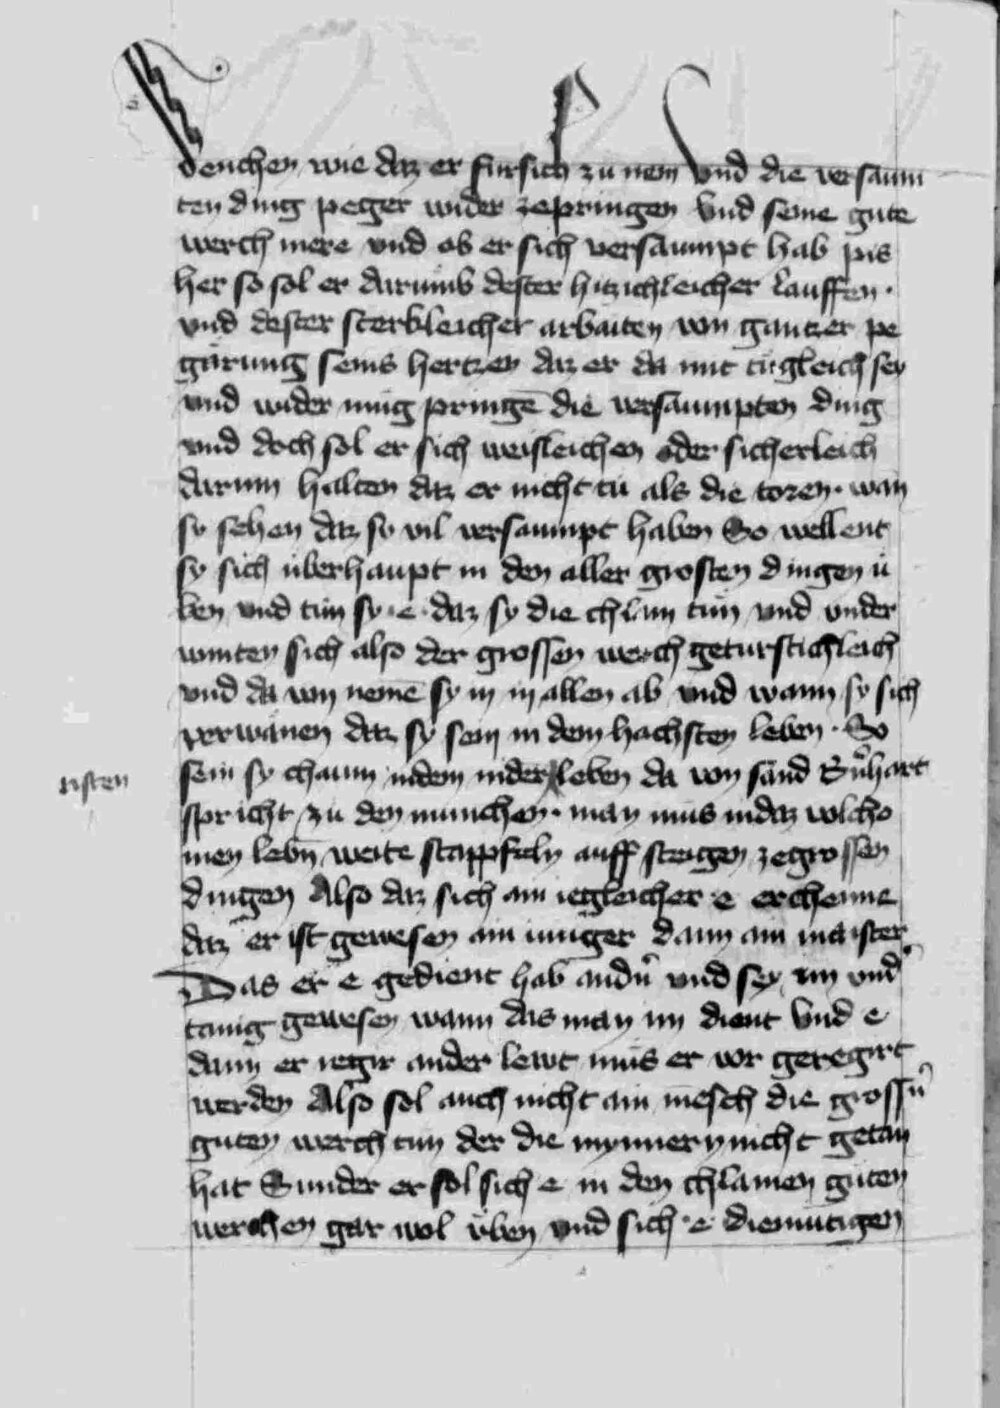 denchen wie daz er fursich zu nem vnd die versaum
ten ding peger wider zepringen vnd seine gute
werch mere vnd ob er sich versaumpt hab pis
her so sol er darumb dester hitzichleicher lauffen ·
vnd dester sterkleicher arbaiten von gantzer pe
gärung seins hertzen daz er da mit tügleich sey
vnd wider müg pringē die versaumpten ding
vnd doch sol er sich weisleichen oder sicherleich
darum halten daz er nicht tü als die toren · wan
sy sehen daz sy vil versaumpt haben So wellent
sy sich überhaupt in den aller grosten dingen ü
ben vnd tün sy · e · daz sy die chlain tün vnd vnder
winten sich also der grossen werch geturstichleich
vnd da von nemē sy in in allen ab vnd wann sy sich
verwänen daz sy sein in dem hachsten leben · So
sein sy chaum indem nider leben da von sand Bn̄hart
risten
spricht zu den munchen · man mus in daz volcho
men lebn̄ weite stappfeln auff steigen ze grossen
dingen Also daz sich ain iegleicher e erchenne
daz er ist gewesen ain iunger dann ain maister
Das er e gedient hab andn̄ vnd sey im vnd̄
tanig gewesen wann das man im dient vnd e
dann er regir ander lewt mus er vor geregirt
werden Also sol auch nicht ain mēsch die grossn̄
guten werch tun der die mynnern nicht getan
hat Sunder er sol sich e in den chlainen guten
werchen gar wol üben vnd sich · e · diemutigen